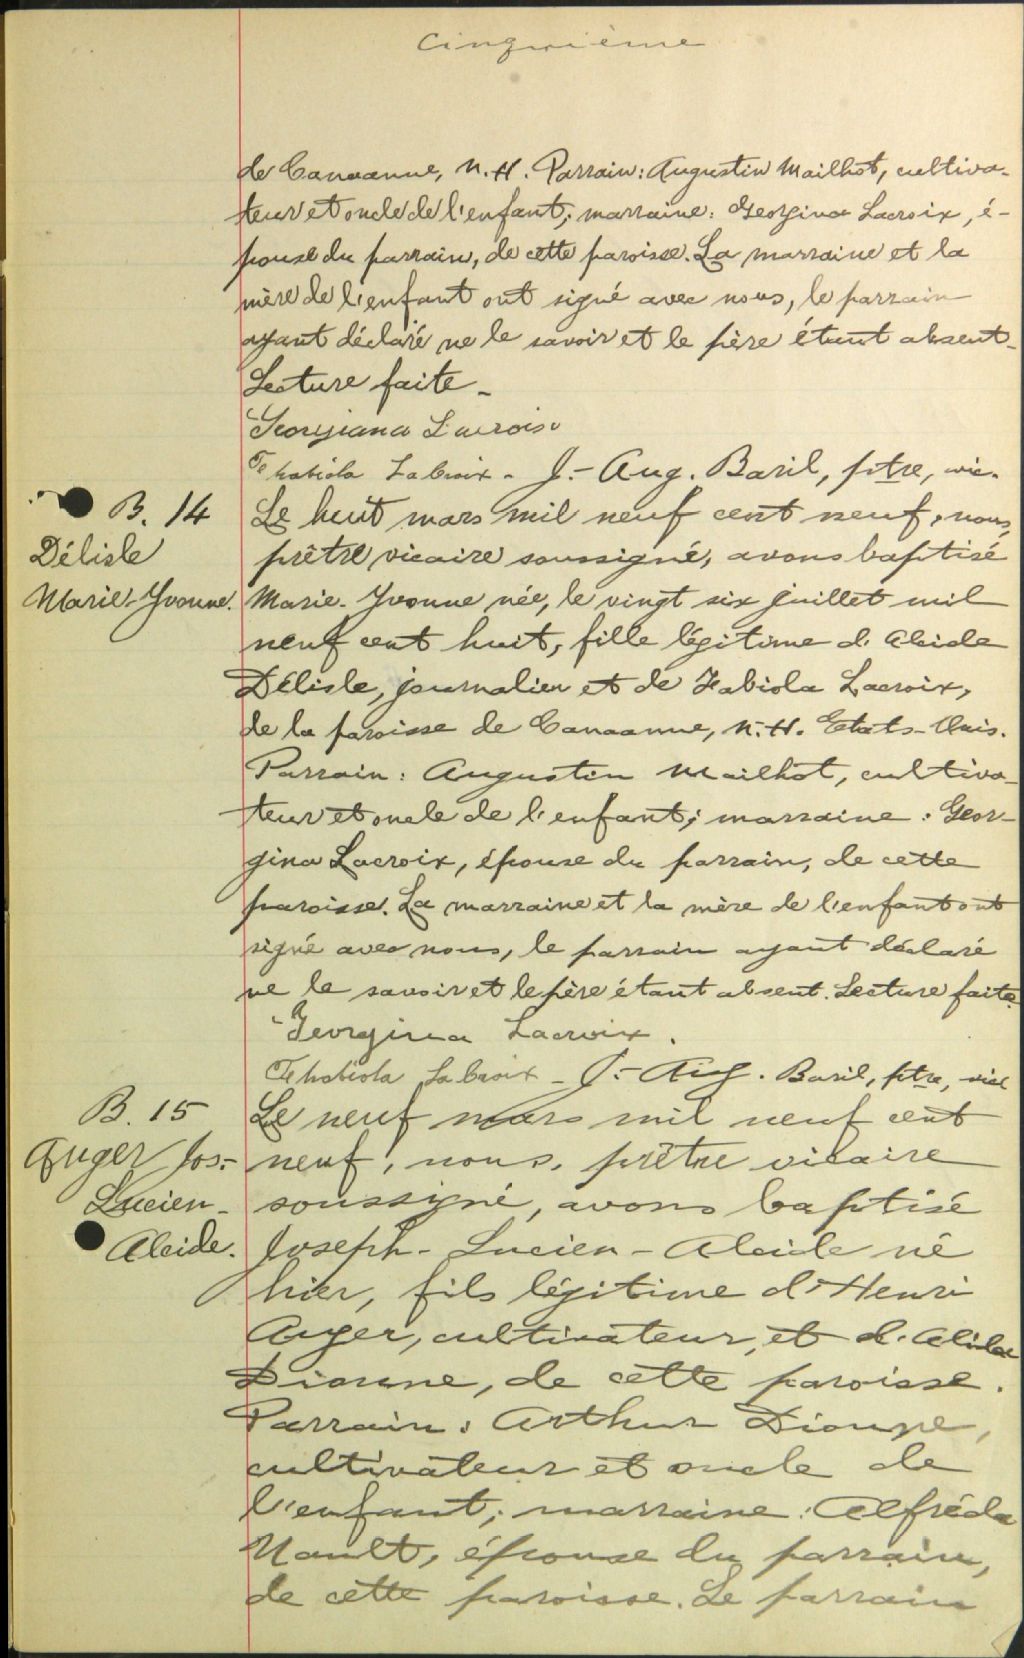 Cinquième
de Canaanne, N.H. Parrain: Augustin Mailhot, cultiva-
teur et oncle de l'enfant; marraine: Georgina Lacroix, é-
pouse du parrain, de cette paroisse. La marraine et la
mère de l'enfant ont signé avec nous, le parrain
ayant déclaré ne le savoir et le père étant absent.
Lecture faite.
Georgiana Lacroix
Fhabiola Lacroix - J.-Aug. Baril, ptre, vic.
B. 14
Délisle
Marie-Yvonne.
Le huit mars mil neuf cent neuf, nous,
prêtre vicaire soussigné, avons baptisé
Marie-Yvonne née, le vingt six juillet mil
neuf cent huit, fille légitime d'Alcide
Délisle, journalier et de Fabiola Lacroix,
de la paroisse de Canaanne, N.H. Etats-Unis.
Parrain: Augustin Mailhot, cultiva-
teur et oncle de l'enfant; marraine: Geor-
gina Lacroix, épouse du parrain, de cette
paroisse. La marraine et la mère de l'enfant ont
signé avec nous, le parrain ayant déclaré
ne le savoir et le père étant absent. Lecture faite.
Georgina Lacroix.
Fhabiola Lacroix - J.-Aug. Baril, ptre, vic
B. 15
Auger Jos.-
Lucien-
Alcide.
Le neuf mars mil neuf cent
neuf, nous, prêtre vicaire
soussigné, avons baptisé
Joseph-Lucien-Alcide né
hier, fils légitime d'Henri
Auger, cultivateur, et d'
Dionne, de cette paroisse.
Parrain: Arthur Dionne,
cultivateur et oncle de
l'enfant; marraine: Alfréda
Nault, épouse du parrain,
de cette paroisse. Le parrain